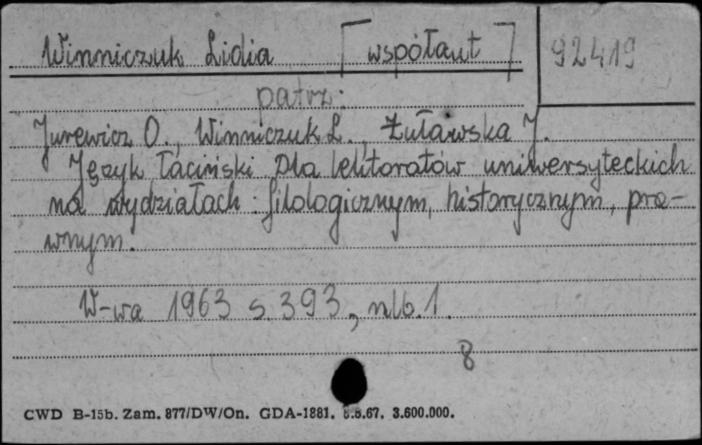 Winniczuk Lidia [współaut] 92419
patrz:
Jurewicz O., Winniczuk L., Żuławska J.
Język łaciński dla lektoratów uniwersyteckich
na wydziałach: filologicznym, historycznym, pra-
wnym.
W-wa 1963 s. 393, nlb. 1.
8
CWD B-15b. Zam. 877/DW/On. GDA-1881. 8.8.67. 3.600.000.